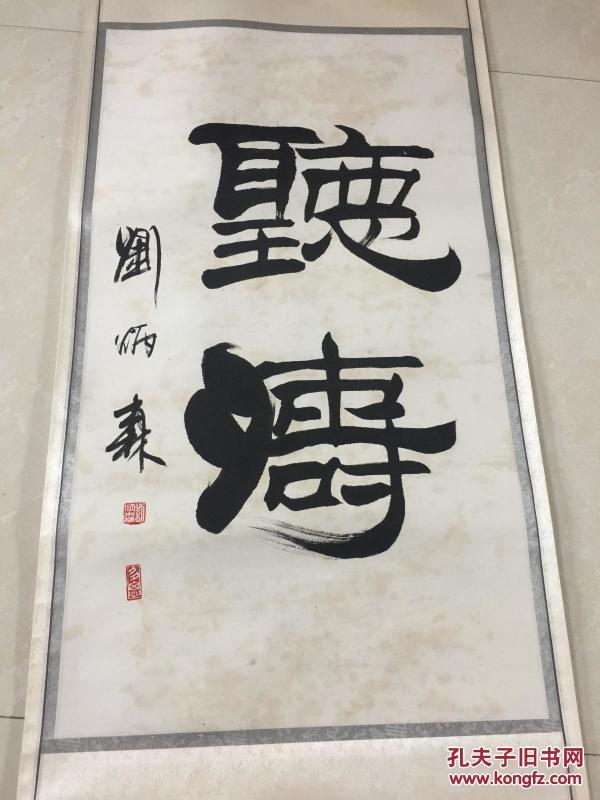 聽濤
劉炳森
孔夫子旧书网
www.kongfz.com